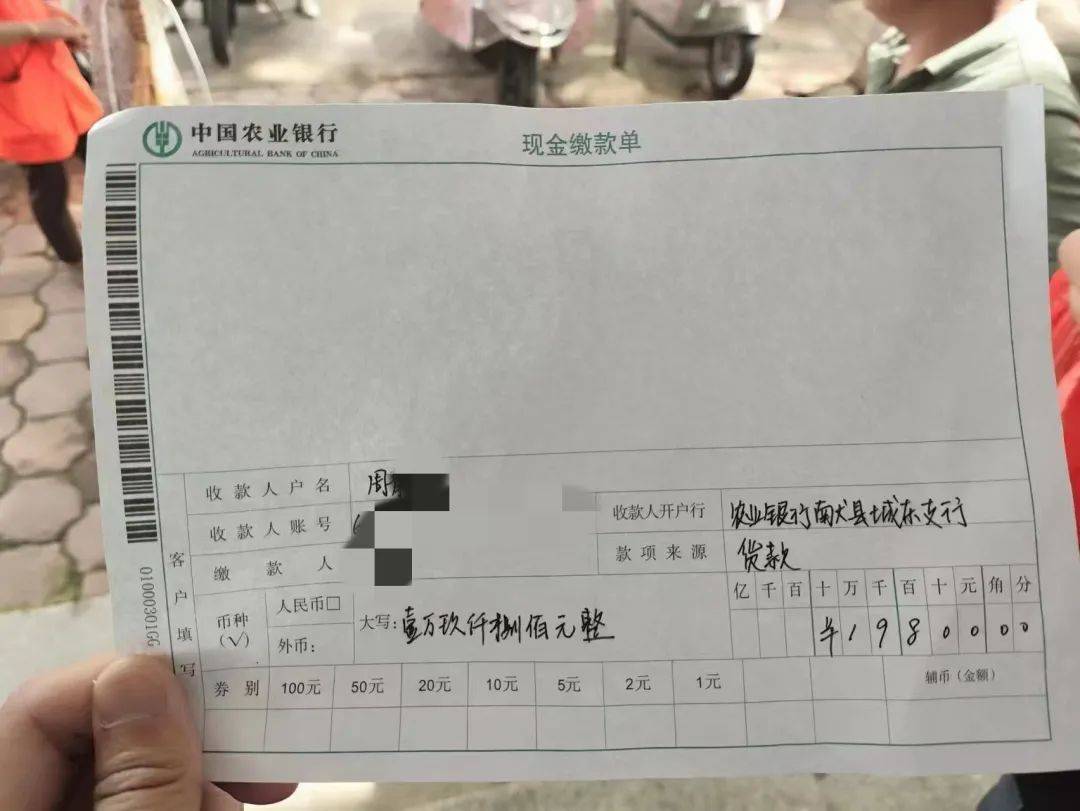 中国农业银行
AGRICULTURAL BANK OF CHINA
现金缴款单
01000301GG
客户填写
收款人户名 周
收款人账号
收款人开户行 农业银行南大县城东支行
缴款人
款项来源 货款
币种(√) 人民币□
外币:
大写:壹万玖仟捌佰元整
亿千百十万千百十元角分
¥1980000
券别 100元 50元 20元 10元 5元 2元 1元 辅币(金额)